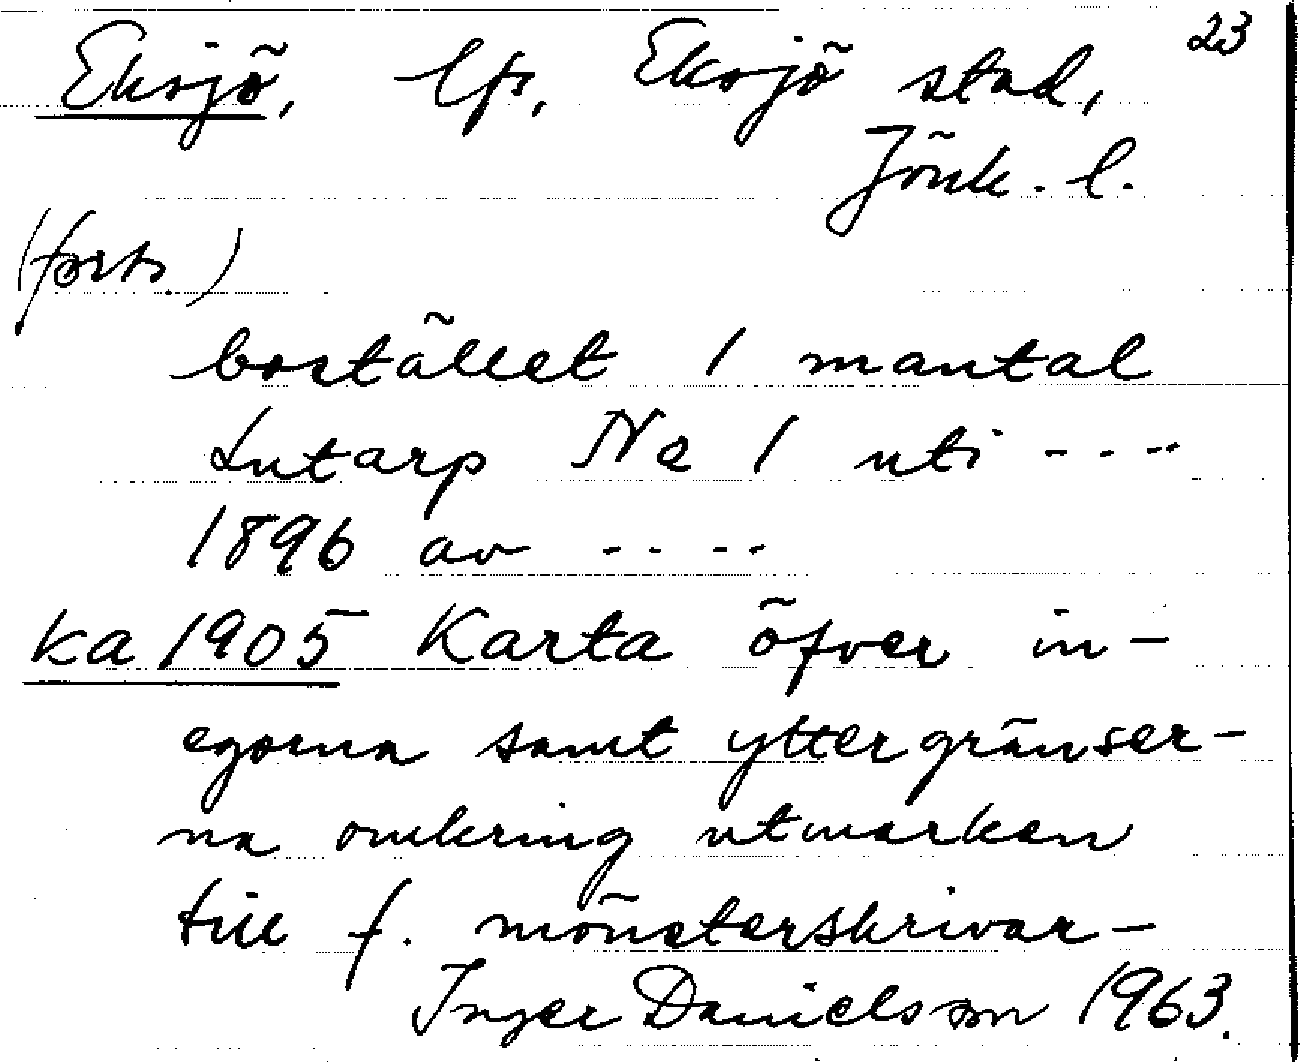 23
Eksjö, lfs, Eksjö stad,
Jönk. l.
(forts.)
bostället 1 mantal
Lutarp No 1 uti ----
1896 av ----
ka 1905 Karta öfver in-
egorna samt yttergränser-
na omkring utmarken
till f. mönsterskrivar-
Inger Danielsson 1963.